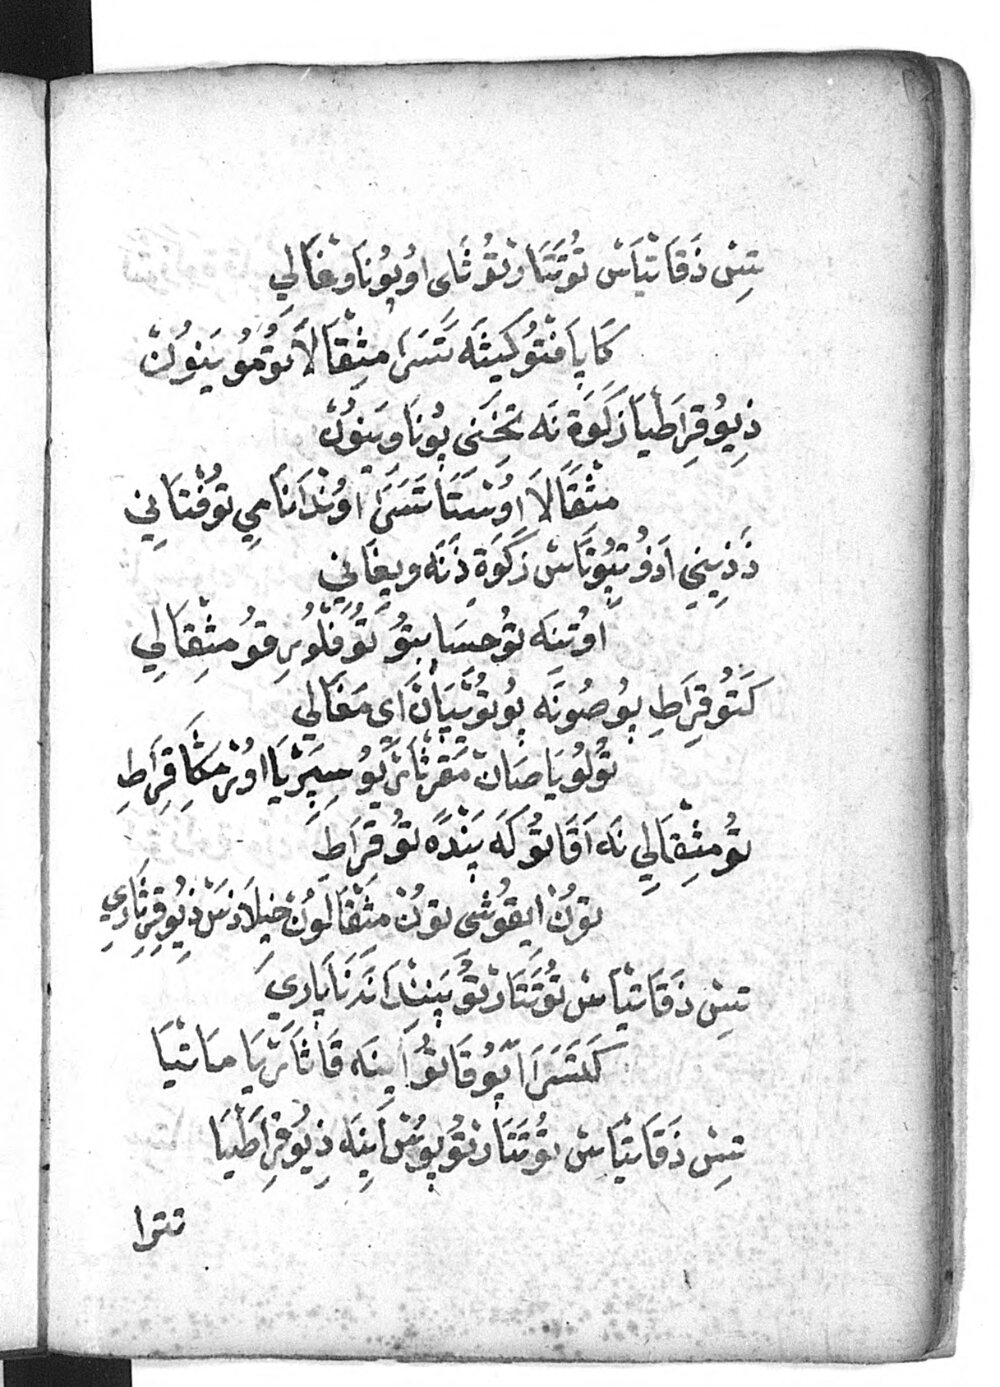 تِسْ ذِقَاتْيَاسْ تُوتَتَارْتُو ثَاى اوُپُونَا وغَالِي
كَاپَافْتُو كَيثَه تَسَرَا مِثْقَالاَ تُومُو يَنِوُنْ
ذِيُوقِرَاطْيَا زَكَوَة نَه تِخَنى پُونَا وَيَنِوُنْ
مِثْقَالاَ اوُنْسْتَا تَسَرَا اوُنْدَانَا مِي تُوفْتَانِي
ذَذِينِي اَذفُتِپُوتَاسْ زَكَوَة ذَنَه وِيغَانِي
اوُتِنَه تُوحِسَابِتُو تُوفْلُورِقُو مِثْقَالِي
كَتُوقِرَاطِ پُوصُونَه پُوتُوتْيَانْ اَى مَغَالِي
تُولُويَاصَانْ مَقْرْثَارْيُو سِپِرْيَا اوُنْرْمَكَا قِرَاطِ
تُومِثْقَالِي نَه اَقَاتُو كَه پَنْدَه تُوقِرَاطِ
تُونْ ايقُوشى تُونْ مِثْقَالُونْ خِيلاَذَسْ ذِيُوقِرِثَارِي
تِسْ ذَقَاتْيَاسْ تُوتَتَارْتُو پَنِنْدَانَدَنَاپَارِي
كَتَسَرَا پُوقَاتُو اَيِنَه قَاثَارْيَا مَاتْيَا
تِسْ ذَقَاتْيَاسْ تُوتَتَارْتُو پُوسْ اَيِنَه ذِيُوقِرَاطْيَا
تترا